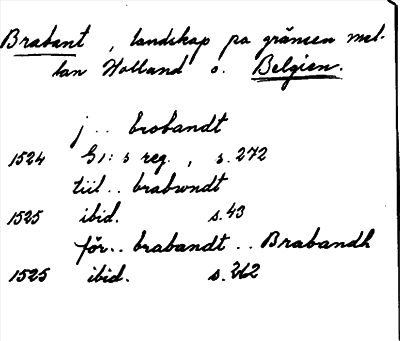 Brabant, landskap på gränsen mel-
lan Holland o. Belgien.
j .. brobandt
1524 G1:s reg., s. 272
tiil .. brabwndt
1525 ibid. s. 43
för .. brabandt .. Brabandh
1525 ibid. s. 262